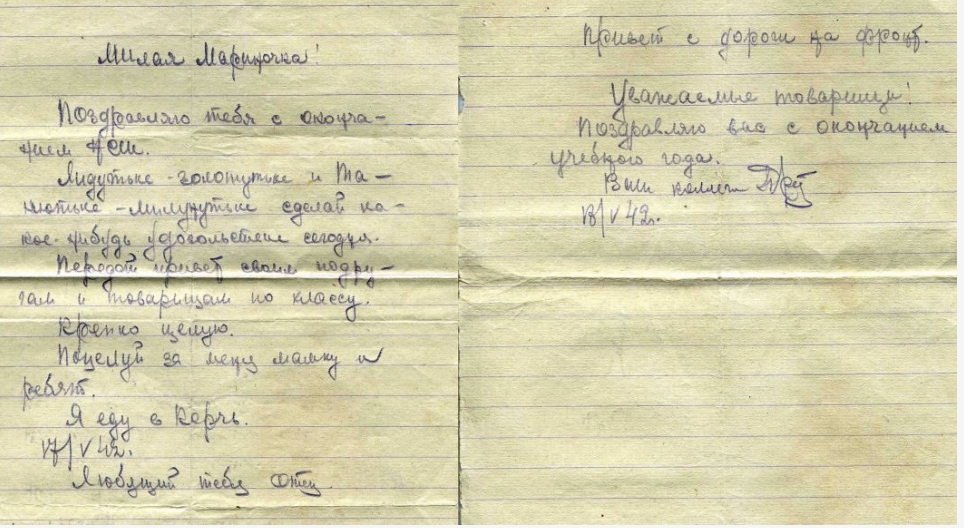 Милая Мариночка!
Поздравляю тебя с оконча-
нием НСШ.
Лидутьке-золотутьке и Та-
нютьке-милунутьке сделай ка-
кое-нибудь удовольствие сегодня.
Передай привет своим подру-
гам и товарищам по классу.
Крепко целую.
Поцелуй за меня мамку и
ребят.
Я еду в Керчь.
17/V 42г.
Любящий тебя Отец
Привет с дороги на фронт.
Уважаемые товарищи!
Поздравляю вас с окончанием
учебного года.
Ваш коллега
18/V 42г.